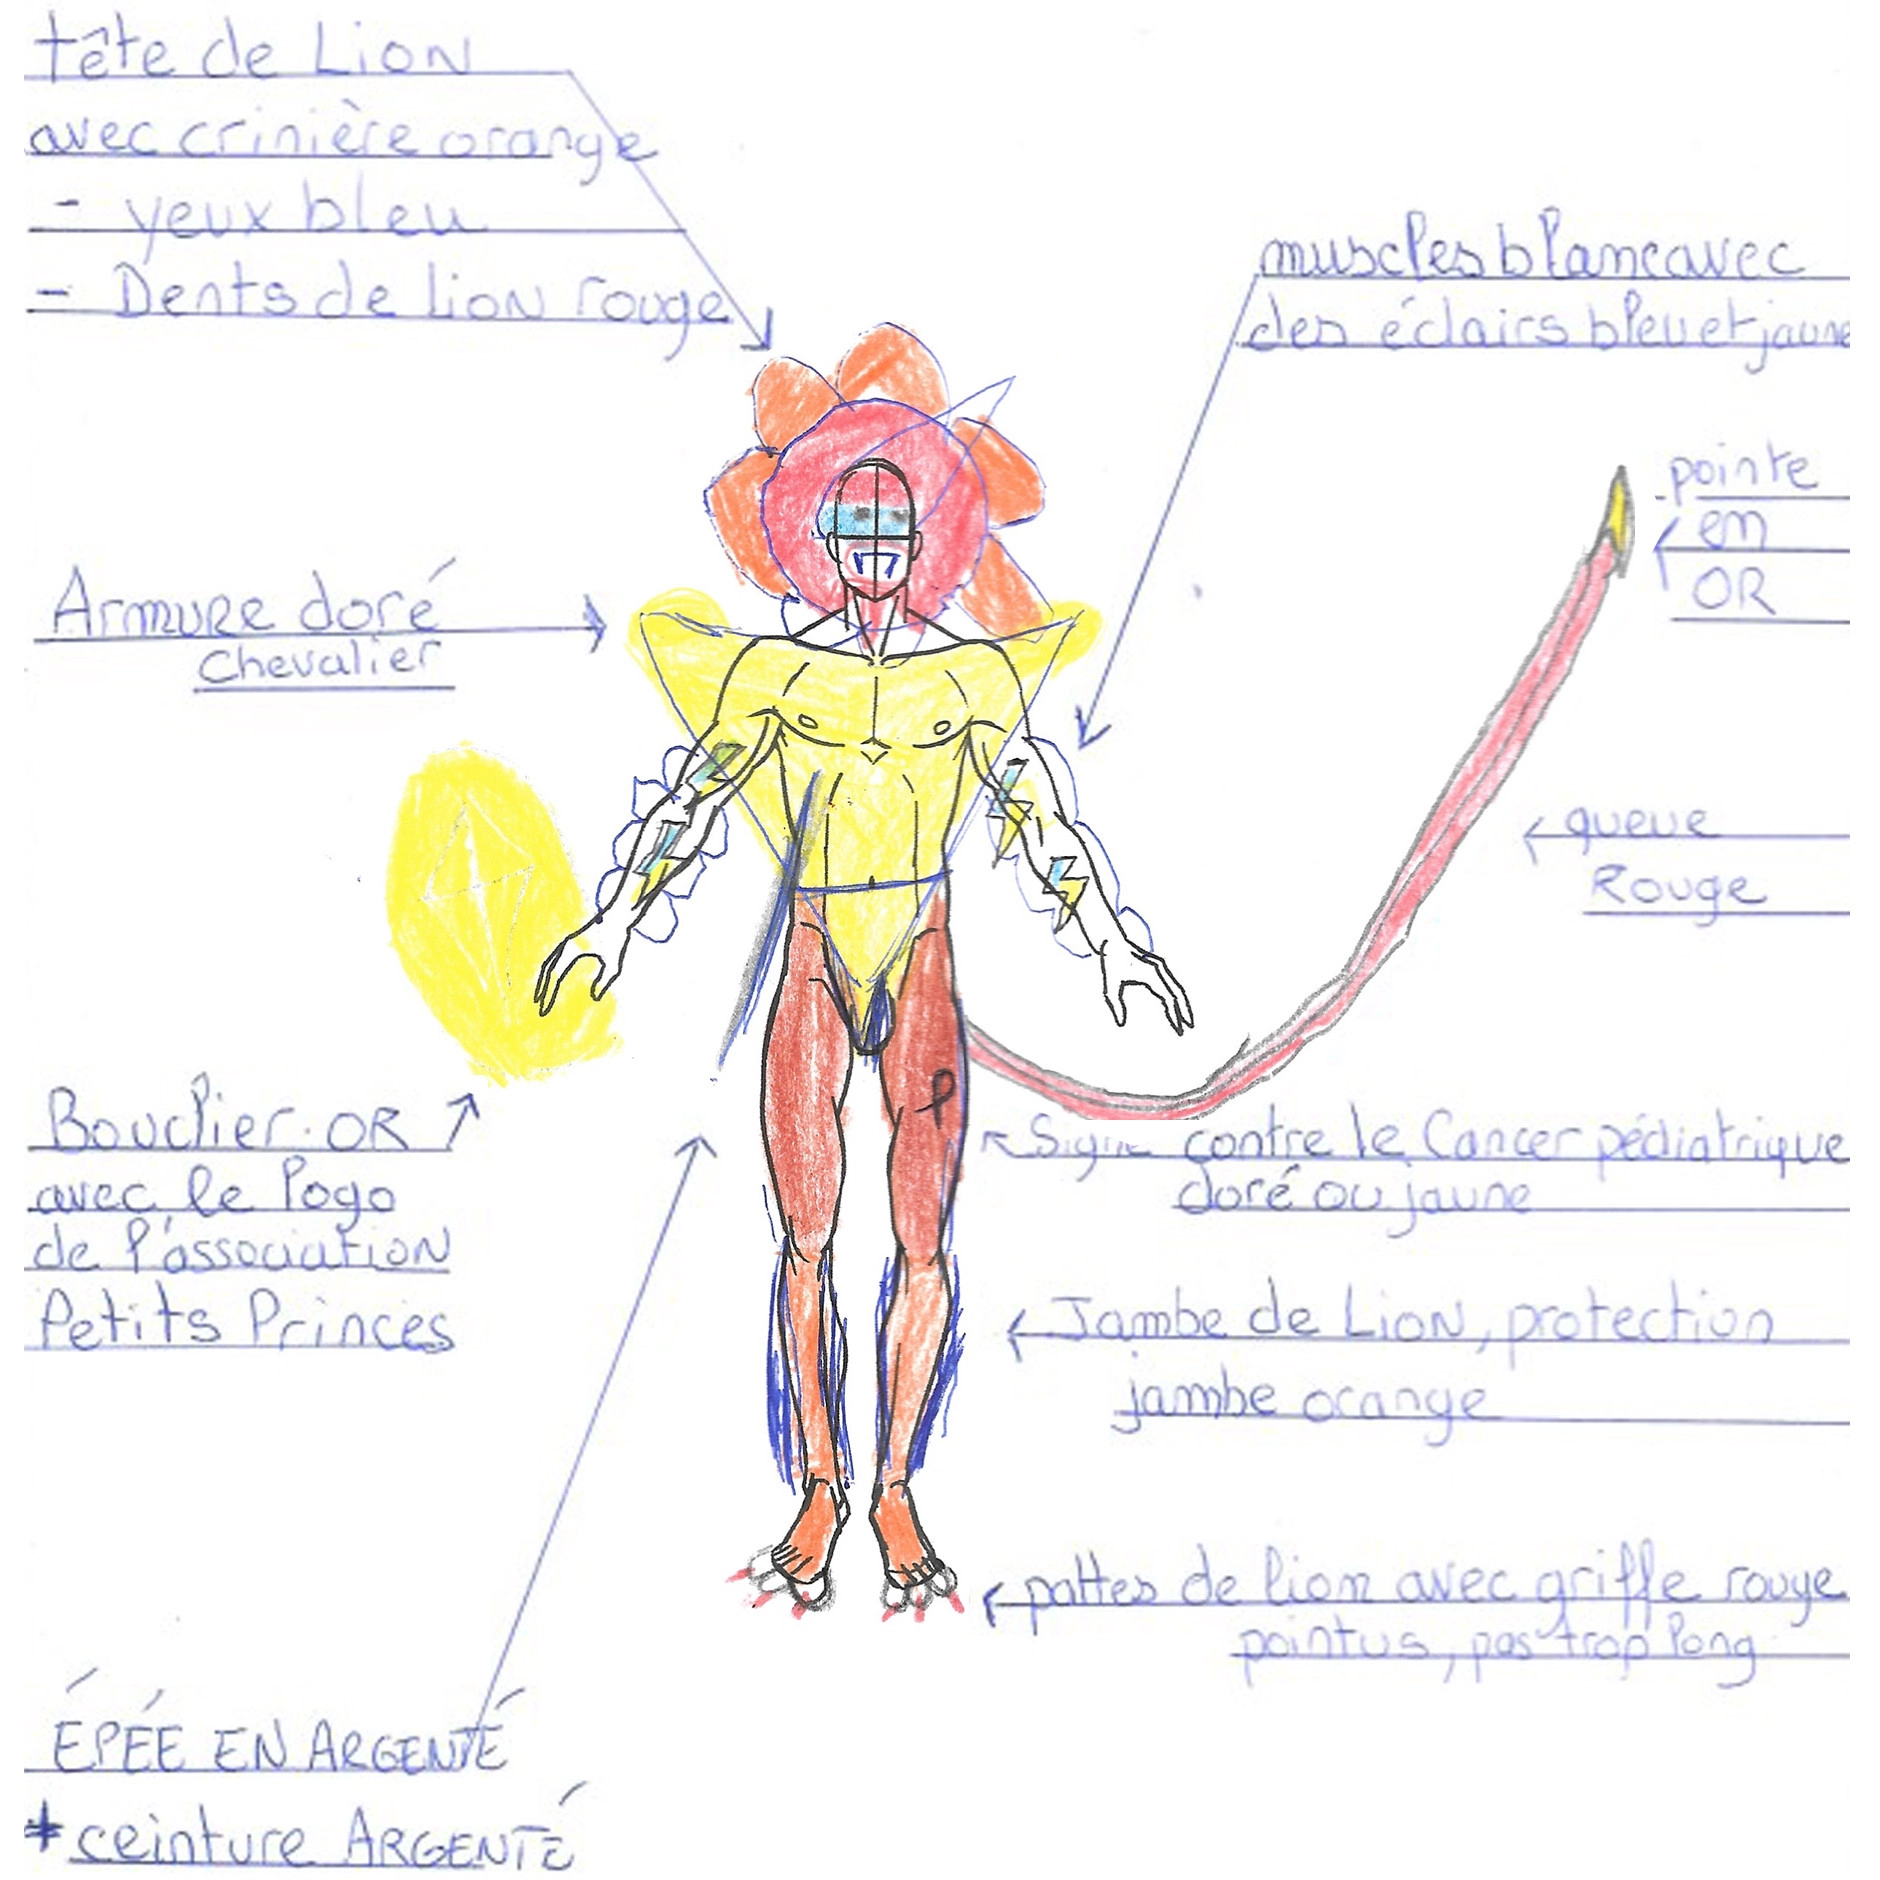 tête de Lion
avec crinière orange
- yeux bleu
- Dents de lion rouge
muscles blanc avec
des éclairs bleu et jaune
pointe
en
OR
Armure doré
Chevalier
queue
Rouge
Bouclier OR
avec le logo
de l'association
Petits Princes
Signe contre le Cancer pédiatrique
doré ou jaune
Jambe de Lion, protection
jambe orange
pattes de lion avec griffe rouge
pointus, pas trop long
ÉPÉE EN ARGENTÉ
+ ceinture ARGENTÉ